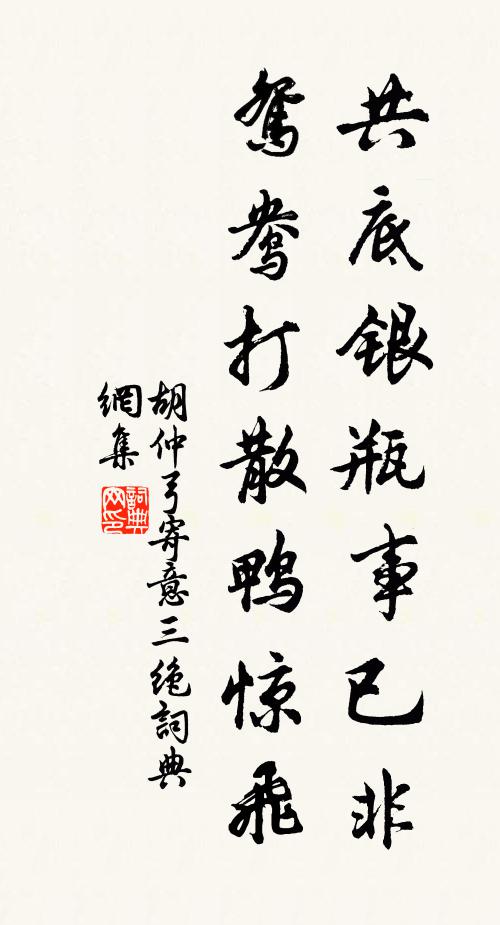 共底银瓶事已非
鸳鸯打散鸭惊飞
胡仲弓寄意三绝詞典
網集
詞典
网印